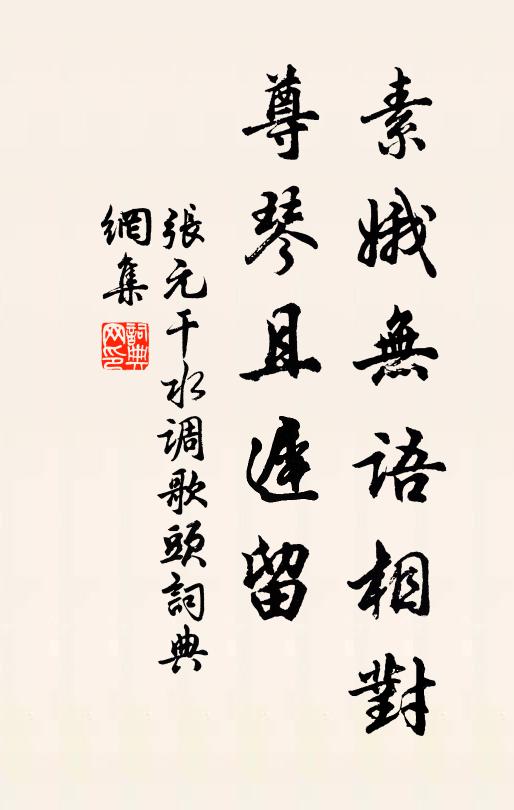 素娥無語相對
尊琴且遲留
張元干水调歌頭詞典
網集
詞典
网印